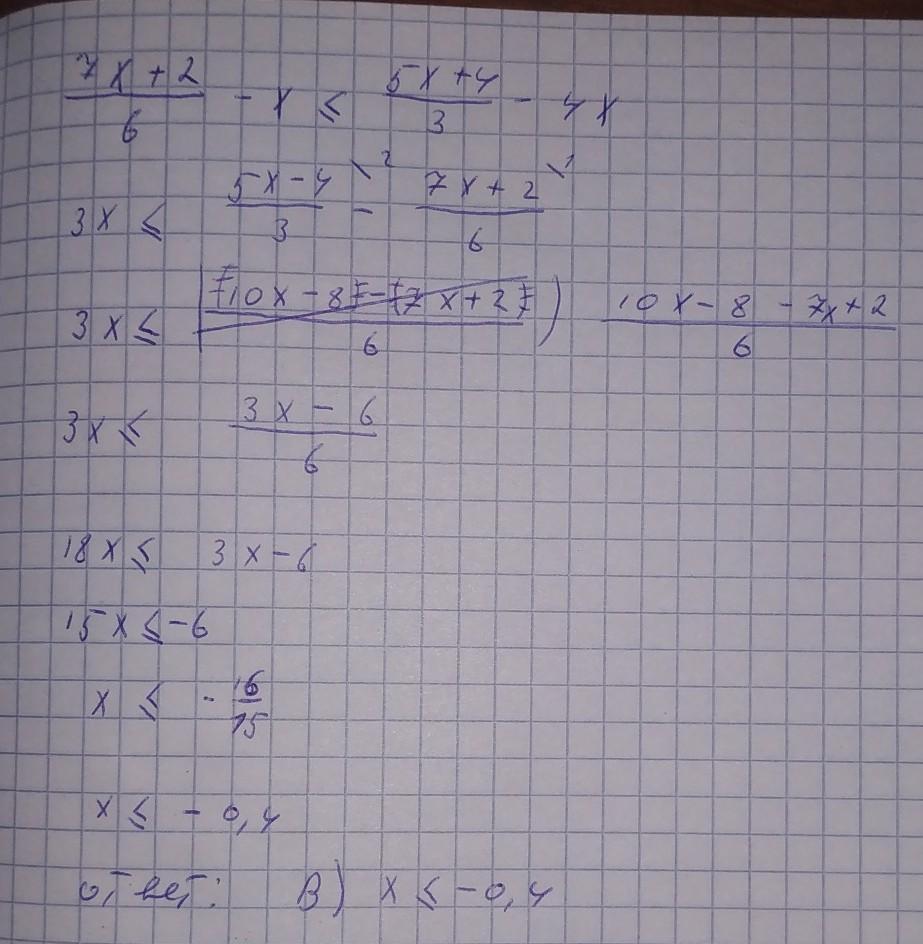 (7x + 2)/6 - x ≤ (5x + 4)/3 - 4x
3x ≤ (5x - 4)/3 \2 - (7x + 2)/6 \1
3x ≤ (10x - 8) - (7x + 2)/6 ) (10x - 8 - 7x + 2)/6
3x ≤ (3x - 6)/6
18x ≤ 3x - 6
15x ≤ -6
x ≤ - 16/15
x ≤ - 0,4
ответ: В) x ≤ - 0,4